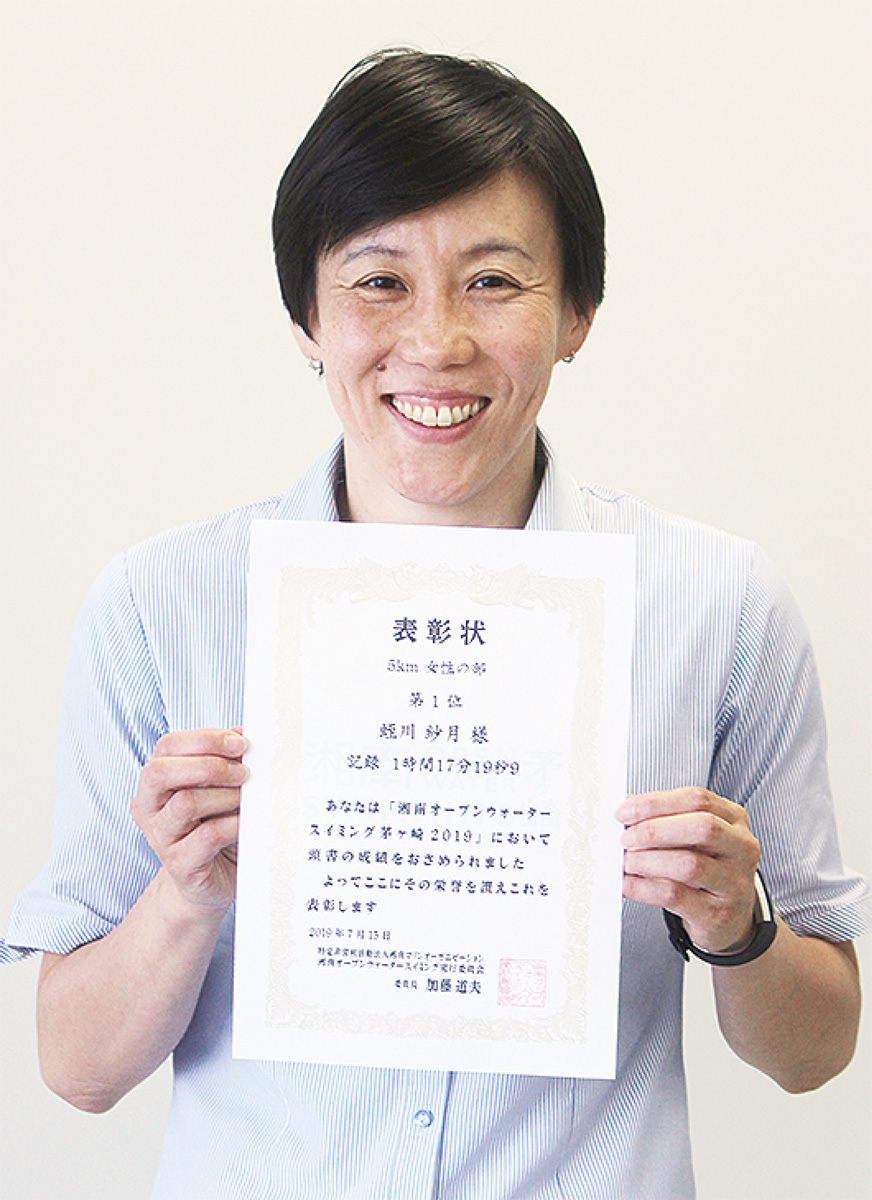 表彰状
5km 女性の部
第1位
蛭川 紗月 様
記録 1時間17分19秒9
あなたは「湘南オープンウォーター
スイミング茅ヶ崎2019」において
頭書の成績をおさめられました
よってここにその栄誉を讃えこれを
表彰します
2019年7月15日
特定非営利活動法人湘南マリンオーガニゼーション
湘南オープンウォータースイミング実行委員会
委員長 加藤道夫